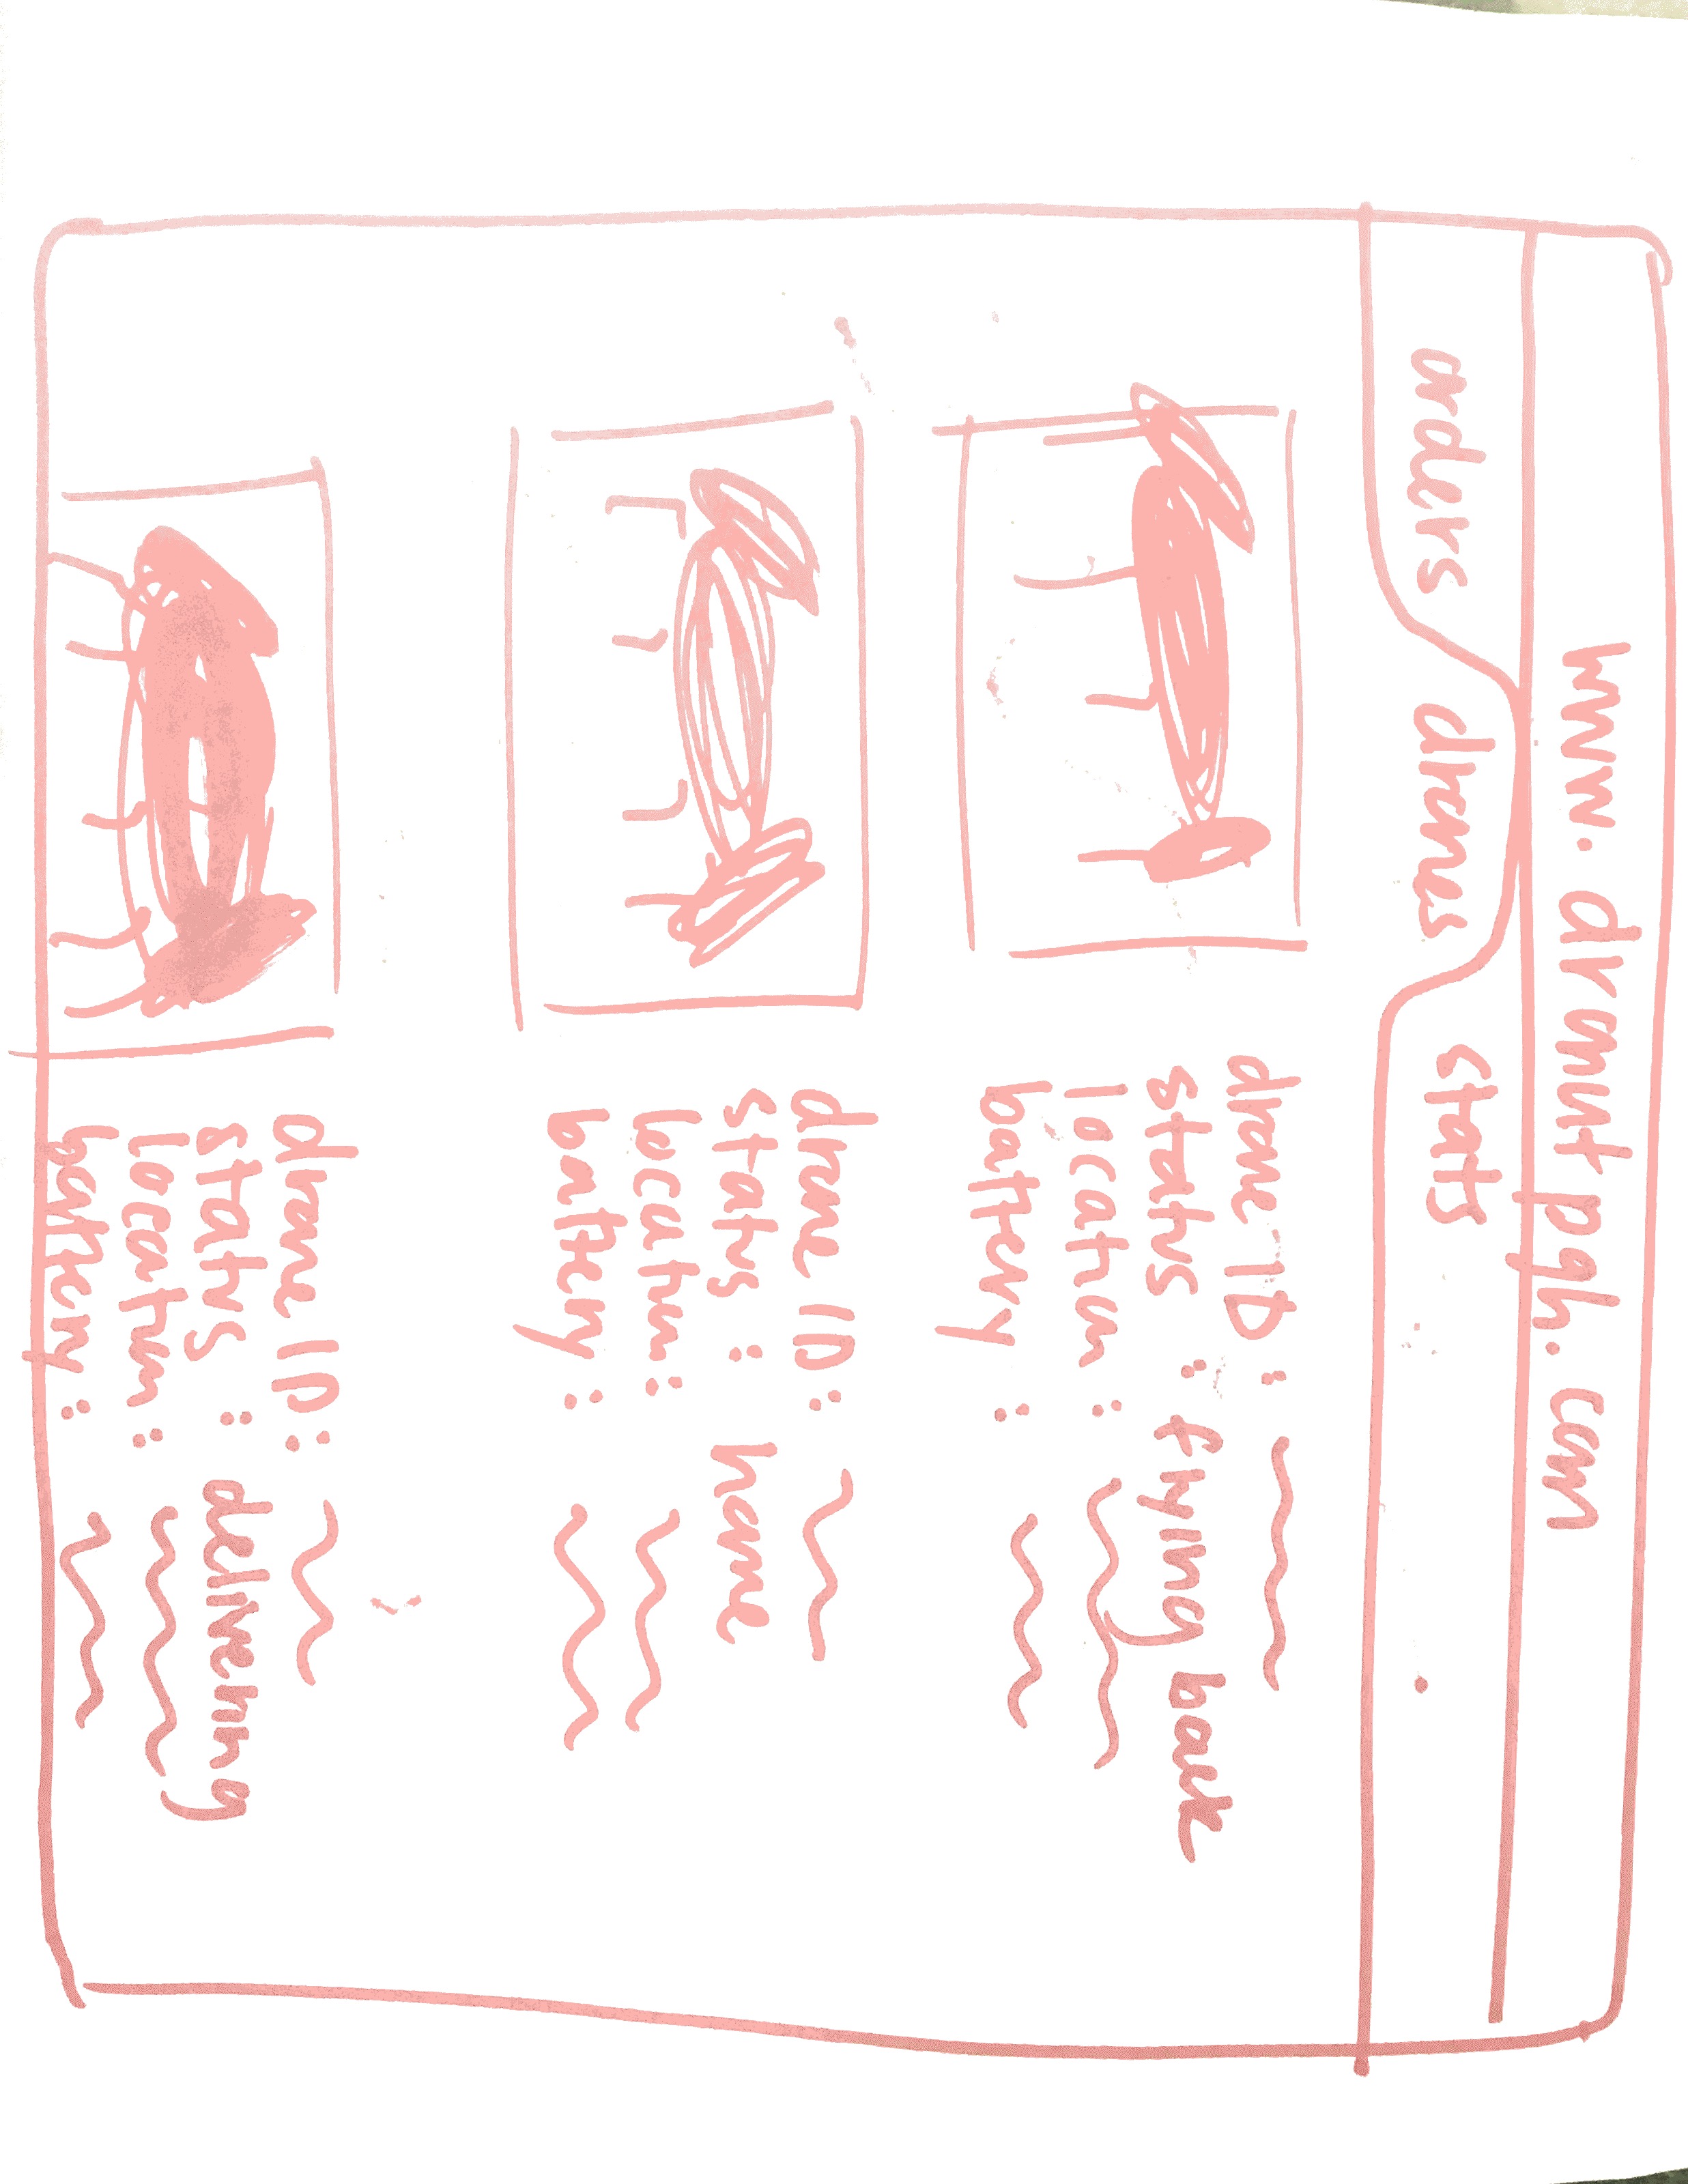 www.dronutpgh.com
orders drones stats
drone ID:
status: flying back
location:
battery:
drone ID:
status: home
location:
battery:
drone ID:
status: delivering
location:
battery: